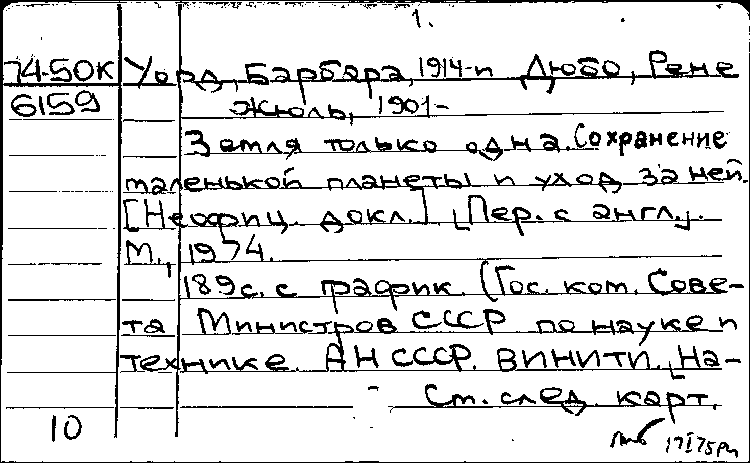 1.
74-50К Уорд, Барбара, 1914- и Дюбо, Рене
6159 Жюль, 1901-
Земля только одна. Сохранение
маленькой планеты и уход за ней.
[Неофиц. докл.] [Пер. с англ.].
М., 1974.
189с. с график. (Гос. ком. Сове-
та Министров СССР по науке и
технике. АН СССР. ВИНИТИ. [На-
См. след. карт.
10
17 I 75